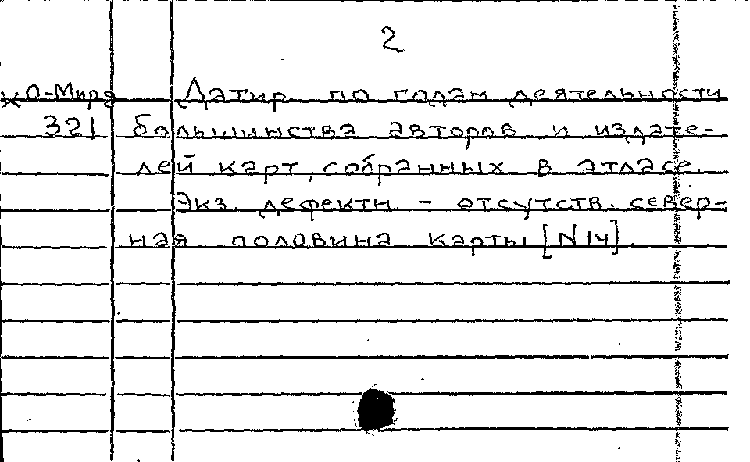 2
хО-Мира Датир. по годам деятельности
321 большинства авторов и издате-
лей карт, собранных в атласе.
Экз. дефектн - отсутств. север-
ная половина карты [N 14].